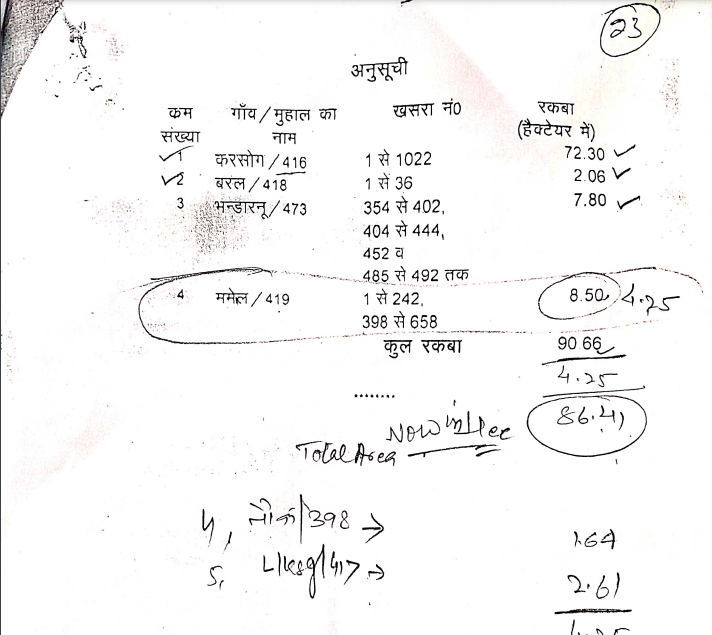 23
अनुसूची
कम संख्या गाँव/मुहाल का नाम खसरा नं0 रकबा (हैक्टेयर में)
1 करसोग/416 1 से 1022 72.30
2 बरल/418 1 सें 36 2.06
3 भन्डारनू/473 354 से 402, 7.80
404 से 444,
452 व
485 से 492 तक
4 ममेल/419 1 से 242, 8.50 4.25
398 से 658
कुल रकबा 90 66
4.25
........
86.41
Total Area Now in
4, /398 →
5, /417 →
1.64
2.61
4.25